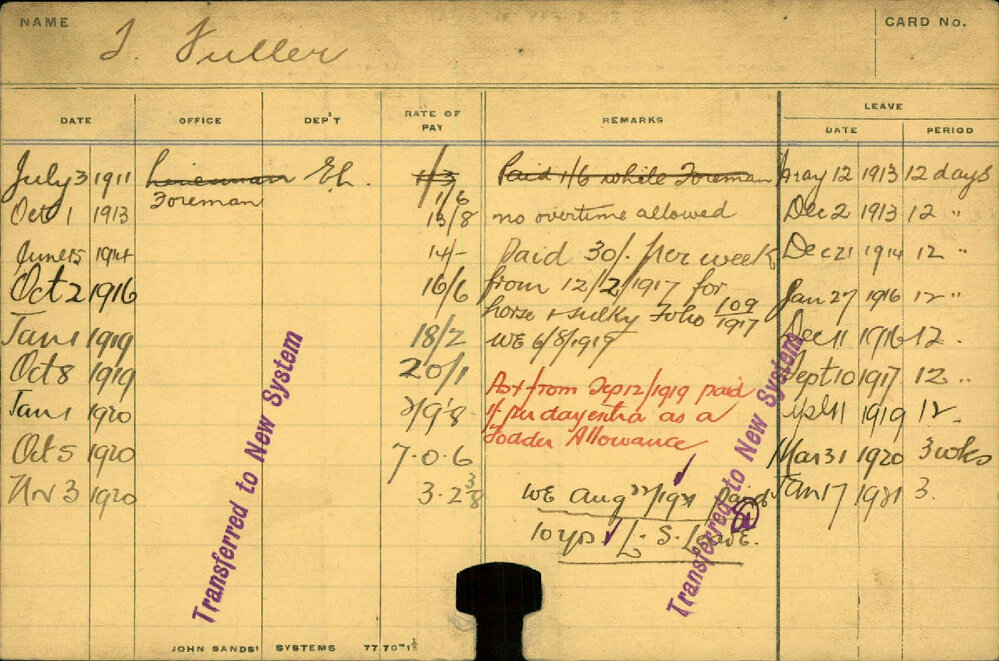 NAME
J. Fuller
CARD No.
DATE OFFICE DEP'T RATE OF PAY REMARKS LEAVE
DATE PERIOD
July 3 1911 Lineman E.L. 1/3 Paid 1/6 while Foreman May 12 1913 12 days
Foreman 1/6
Oct 1 1913 13/8 no overtime allowed Dec 2 1913 12 "
June 15 1914 14/- Paid 30/- per week Dec 21 1914 12 "
Oct 2 1916 16/6 from 12/2/1917 for Jan 27 1916 12 "
horse & sulky Folio 109/1917
Jan 1 1919 18/2 WE 6/8/1919 Dec 11 1916 12 "
Oct 8 1919 20/1 from Sep 12/1919 paid Sept 10 1917 12 "
Jan 1 1920 per day extra as a 1919 12 "
Fodder Allowance
Oct 5 1920 7.0.6 Mar 31 1920 3 wks
Nov 3 1920 3.2 3/8 WE Aug 22/1921 Paid Jan 17 1921 3.
10 yrs L.S. Leave.
Transferred to New System
Transferred to New System
JOHN SANDS' SYSTEMS